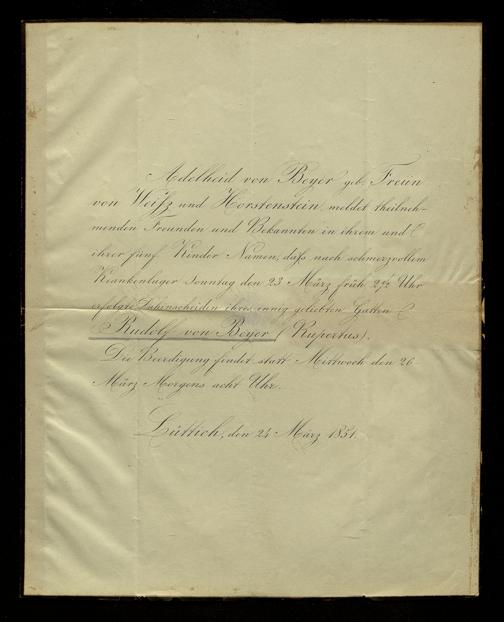 Adelheid von Beyer geb. Freün
von Weifz und Horstenstein, meldet theilneh-
menden Freunden und Bekannten in ihrem und
ihrer fünf Kinder Namen, dafs nach schmerzvollem
Krankenlager Sonntag den 23 März früh 2½ Uhr
erfolgte Dahinscheiden ihres innig geliebten Gatten
Rudolf von Beyer (Rupertus).
Die Beerdigung findet statt Mittwoch den 26
März Morgens acht Uhr.
Lüttich, den 24 März 1851.